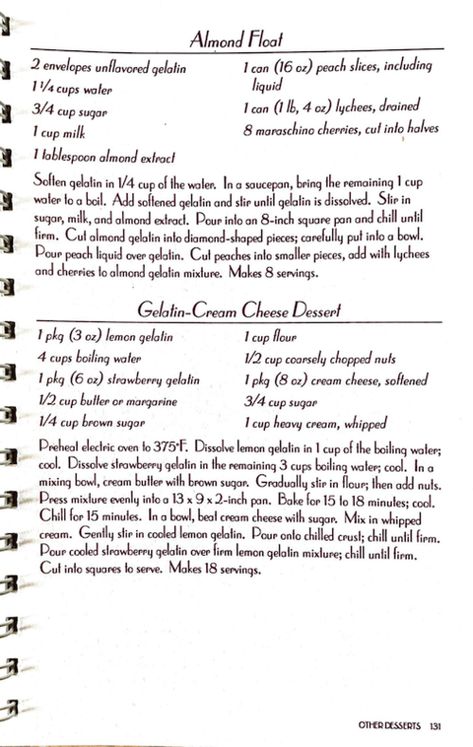 Almond Float
2 envelopes unflavored gelatin
1 1/4 cups water
3/4 cup sugar
1 cup milk
1 tablespoon almond extract
1 can (16 oz) peach slices, including
liquid
1 can (1 lb, 4 oz) lychees, drained
8 maraschino cherries, cut into halves
Soften gelatin in 1/4 cup of the water. In a saucepan, bring the remaining 1 cup
water to a boil. Add softened gelatin and stir until gelatin is dissolved. Stir in
sugar, milk, and almond extract. Pour into an 8-inch square pan and chill until
firm. Cut almond gelatin into diamond-shaped pieces; carefully put into a bowl.
Pour peach liquid over gelatin. Cut peaches into smaller pieces, add with lychees
and cherries to almond gelatin mixture. Makes 8 servings.
Gelatin-Cream Cheese Dessert
1 pkg (3 oz) lemon gelatin
4 cups boiling water
1 pkg (6 oz) strawberry gelatin
1/2 cup butter or margarine
1/4 cup brown sugar
1 cup flour
1/2 cup coarsely chopped nuts
1 pkg (8 oz) cream cheese, softened
3/4 cup sugar
1 cup heavy cream, whipped
Preheat electric oven to 375°F. Dissolve lemon gelatin in 1 cup of the boiling water;
cool. Dissolve strawberry gelatin in the remaining 3 cups boiling water; cool. In a
mixing bowl, cream butter with brown sugar. Gradually stir in flour; then add nuts.
Press mixture evenly into a 13 x 9 x 2-inch pan. Bake for 15 to 18 minutes; cool.
Chill for 15 minutes. In a bowl, beat cream cheese with sugar. Mix in whipped
cream. Gently stir in cooled lemon gelatin. Pour onto chilled crust; chill until firm.
Pour cooled strawberry gelatin over firm lemon gelatin mixture; chill until firm.
Cut into squares to serve. Makes 18 servings.
OTHER DESSERTS 131